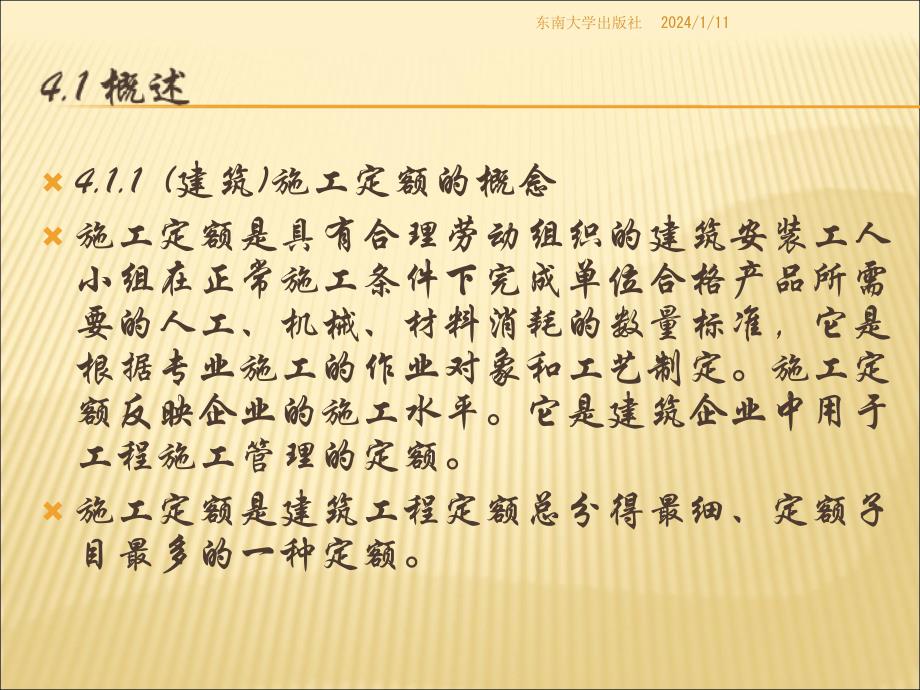 东南大学出版社 2024/1/11
4.1 概述
4.1.1 (建筑)施工定额的概念
施工定额是具有合理劳动组织的建筑安装工人
小组在正常施工条件下完成单位合格产品所需
要的人工、机械、材料消耗的数量标准，它是
根据专业施工的作业对象和工艺制定。施工定
额反映企业的施工水平。它是建筑企业中用于
工程施工管理的定额。
施工定额是建筑工程定额总分得最细、定额子
目最多的一种定额。